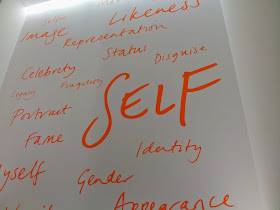 Selfie
Likeness
Image
Representation
Status
Disguise
Celebrity
Legacy
Fragility
SELF
Portrait
Fame
Identity
Myself
Gender
Appearance